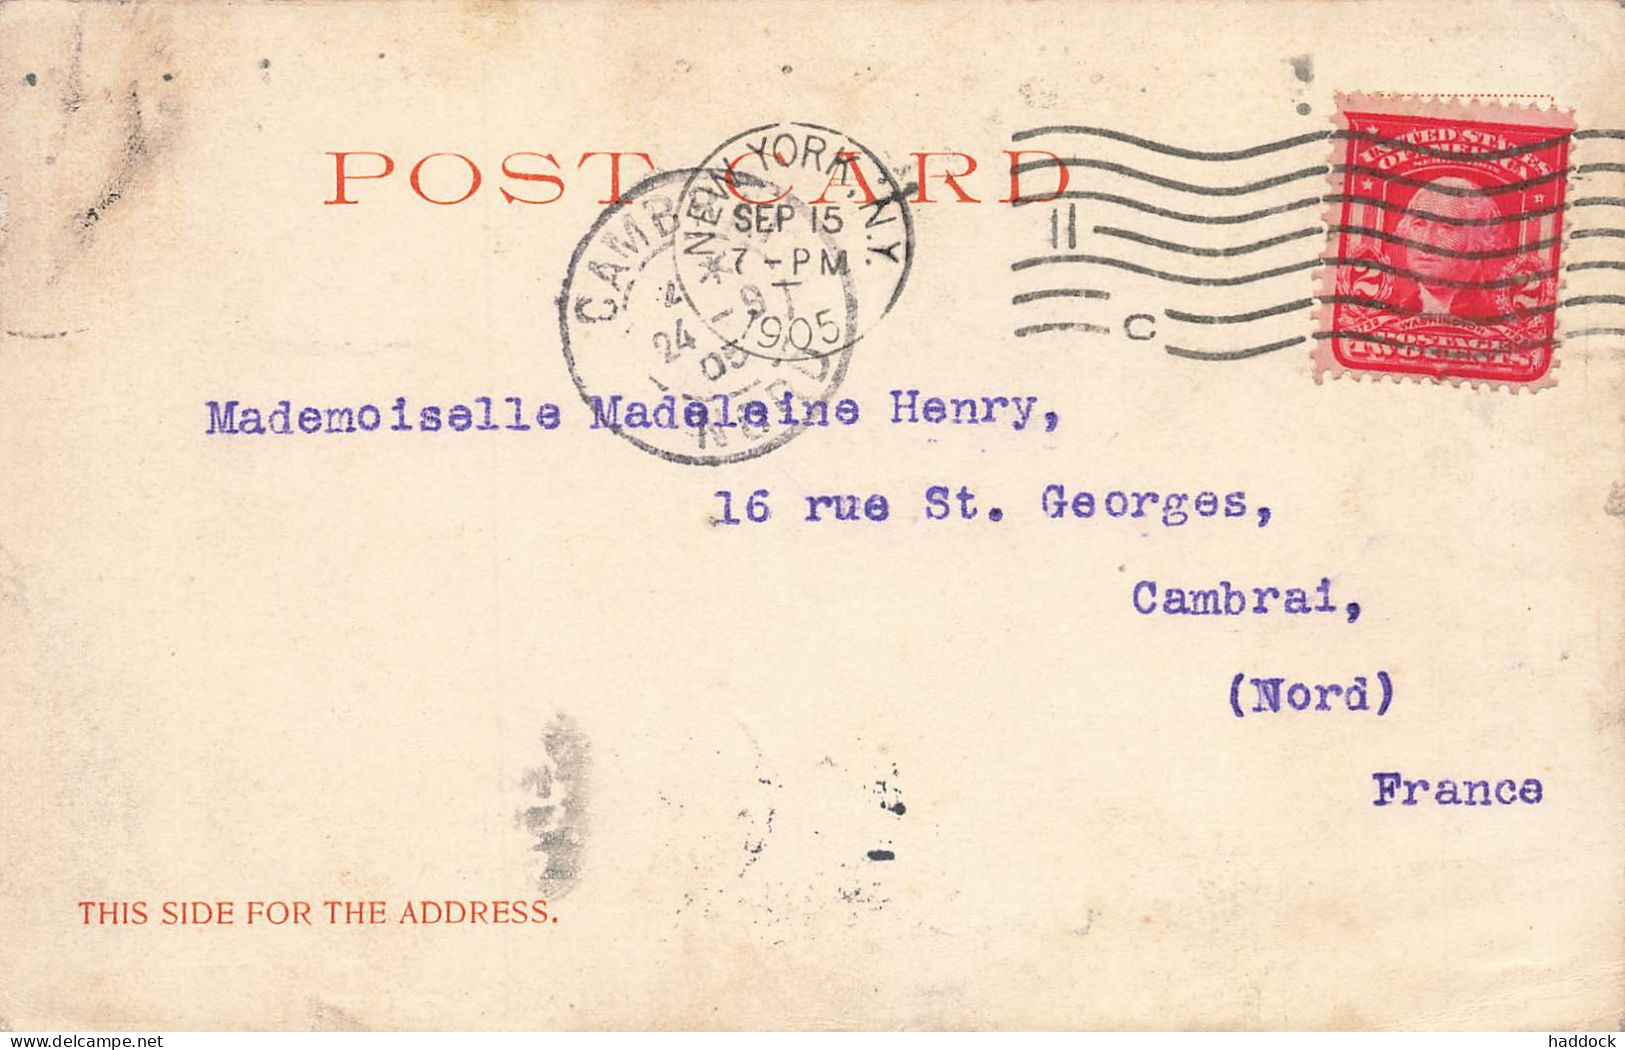 POST CARD
NEW YORK, N.Y.
SEP 15
7-PM
1905
11
C
CAMBRAI
24
05
NORD
UNITED STATES
OF AMERICA
2 2
WASHINGTON
POSTAGE
TWO CENTS
Mademoiselle Madeleine Henry,
16 rue St. Georges,
Cambrai,
(Nord)
France
THIS SIDE FOR THE ADDRESS.
www.delcampe.net
haddock